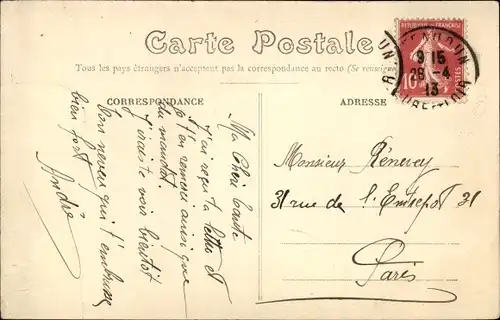 Carte Postale
Tous les pays étrangers n'acceptent pas la correspondance au recto (Se renseigner
CORRESPONDANCE
ADRESSE
REPUBLIQUE FRANÇAISE
10
POSTES
CHATEAUDUN
9 15
28 -4
13
EURE-ET-LOIR
Ma Chère tante
J'ai reçu ta lettre et
t'en remercie ainsi que
du mandat.
J'irai te voir bientôt
ton neveu qui t'embrasse
bien fort
André
Monsieur Rénevey
31 rue de l'Entrepot 31
Paris